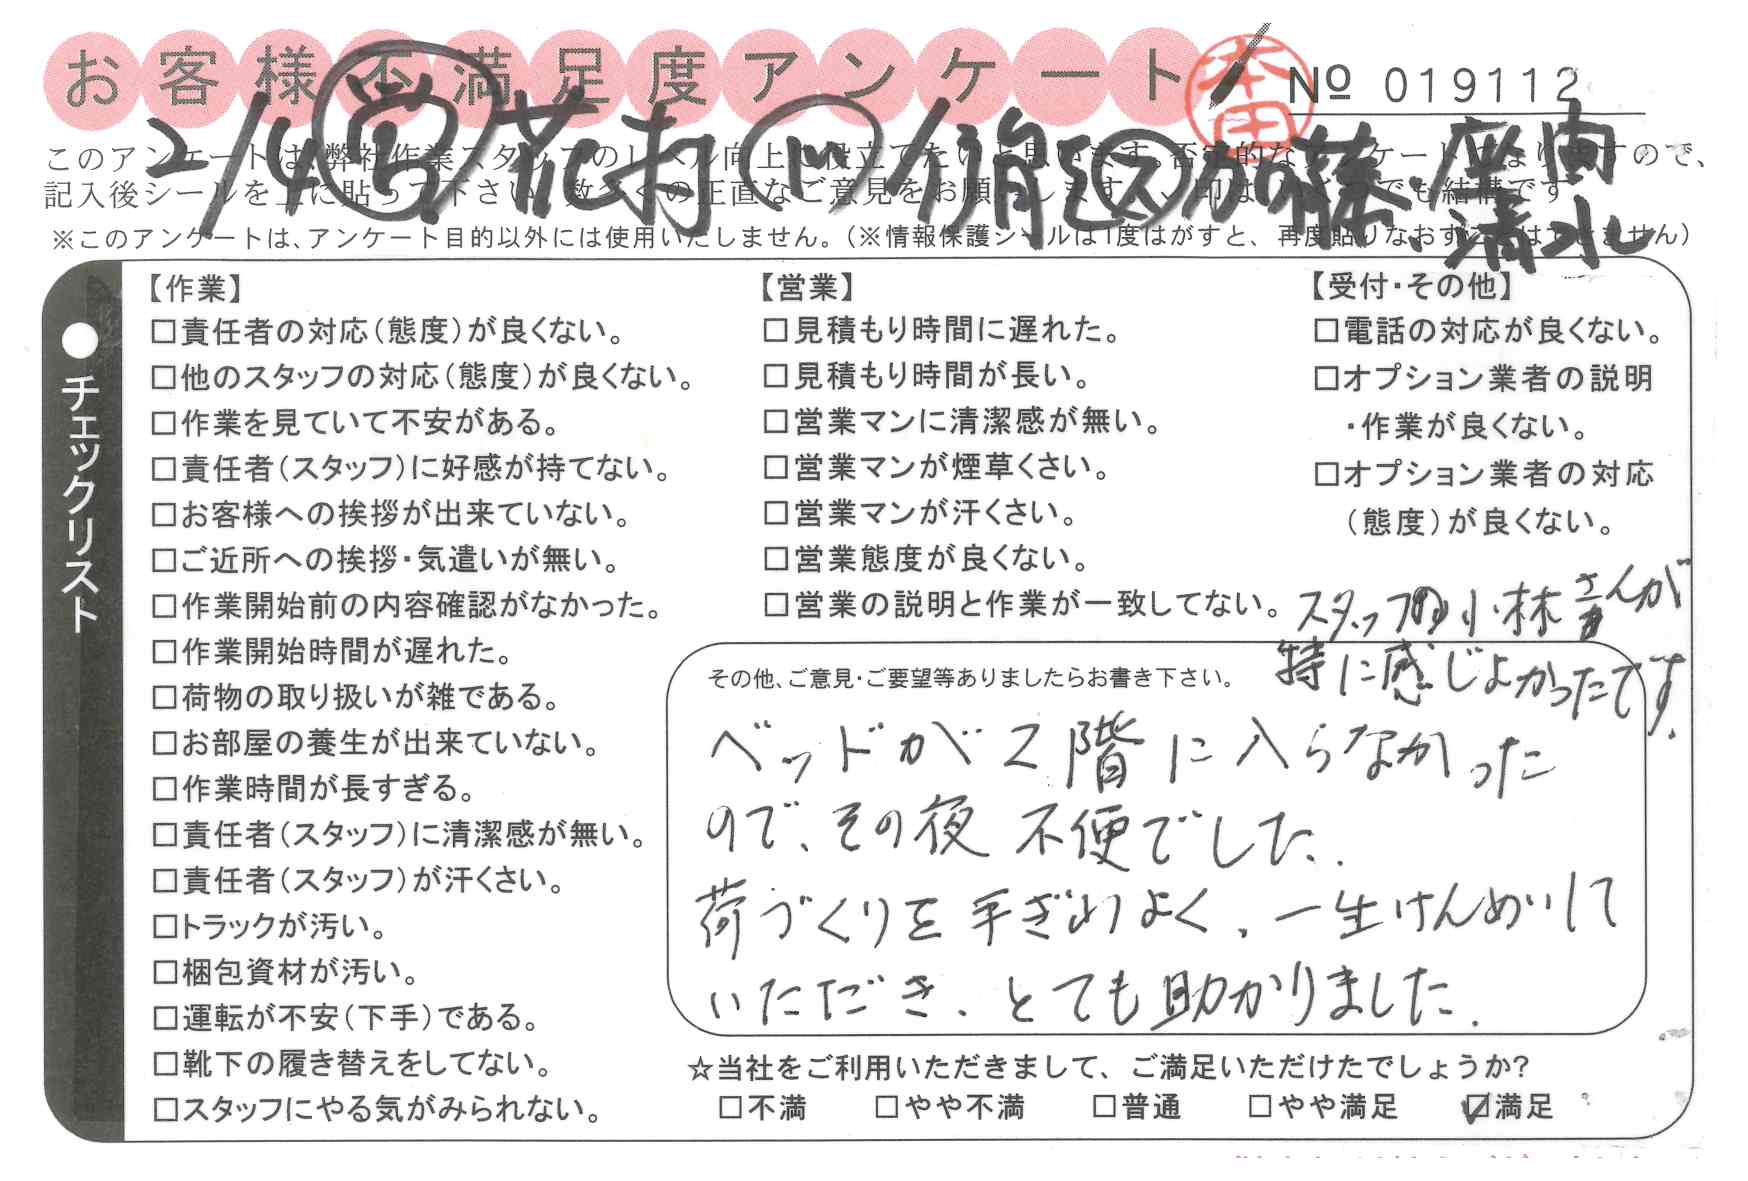 お客様不満足度アンケート
本田
№ 019112
2/4 営 花村 リ 稲熊 ス 加藤、座間、清水
このアンケートは、弊社作業スタッフのレベル向上に役立てたいと思います。否定的なアンケートではありますので、
記入後シールを上に貼って下さい。数多くの正直なご意見をお願いします。✓印はいくつでも結構です
※このアンケートは、アンケート目的以外には使用いたしません。（※情報保護シールは1度はがすと、再度貼りなおすことはできません）
●チェックリスト
【作業】
□責任者の対応（態度）が良くない。
□他のスタッフの対応（態度）が良くない。
□作業を見ていて不安がある。
□責任者（スタッフ）に好感が持てない。
□お客様への挨拶が出来ていない。
□ご近所への挨拶・気遣いが無い。
□作業開始前の内容確認がなかった。
□作業開始時間が遅れた。
□荷物の取り扱いが雑である。
□お部屋の養生が出来ていない。
□作業時間が長すぎる。
□責任者（スタッフ）に清潔感が無い。
□責任者（スタッフ）が汗くさい。
□トラックが汚い。
□梱包資材が汚い。
□運転が不安（下手）である。
□靴下の履き替えをしてない。
□スタッフにやる気がみられない。
【営業】
□見積もり時間に遅れた。
□見積もり時間が長い。
□営業マンに清潔感が無い。
□営業マンが煙草くさい。
□営業マンが汗くさい。
□営業態度が良くない。
□営業の説明と作業が一致してない。
【受付・その他】
□電話の対応が良くない。
□オプション業者の説明
・作業が良くない。
□オプション業者の対応
（態度）が良くない。
スタッフの小林さんが
特に感じよかったです.
その他、ご意見・ご要望等ありましたらお書き下さい。
ベッドが2階に入らなかった
ので、その夜 不便でした.
荷づくりを手ぎわよく、一生けんめいして
いただき、とても助かりました.
☆当社をご利用いただきまして、ご満足いただけたでしょうか?
□不満 □やや不満 □普通 □やや満足 ☑満足